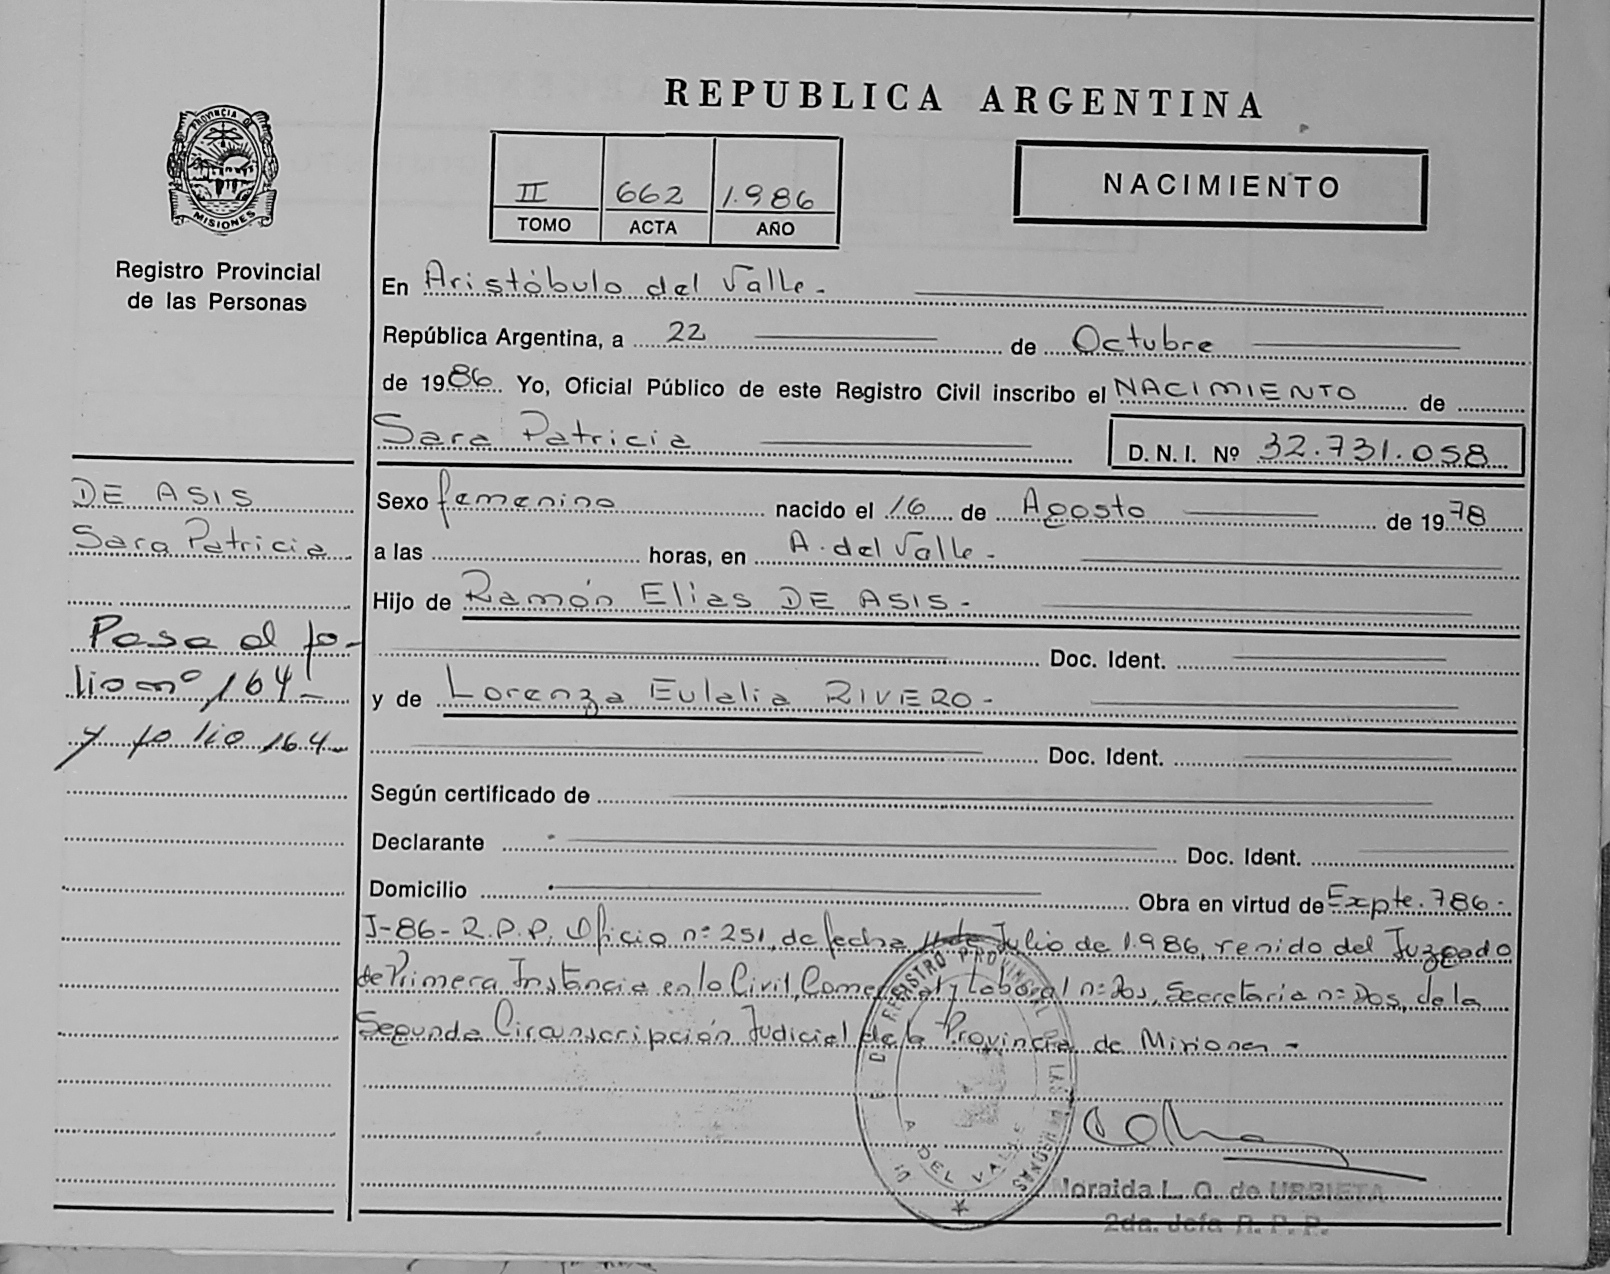 REPUBLICA ARGENTINA
PROVINCIA DE
MISIONES
Registro Provincial
de las Personas
II 662 1.986
TOMO ACTA AÑO
NACIMIENTO
En Aristóbulo del Valle.-
República Argentina, a 22 de Octubre
de 1986 Yo, Oficial Público de este Registro Civil inscribo el NACIMIENTO de
Sara Patricia D.N.I. Nº 32.731.058
DE ASIS
Sara Patricia
Pasa al fo-
lio nº 164-
y folio 164-
Sexo femenino nacido el 16 de Agosto de 1978
a las horas, en A. del Valle-
Hijo de Ramón Elias DE ASIS-
Doc. Ident.
y de Lorenza Eulalia RIVERO-
Doc. Ident.
Según certificado de
Declarante Doc. Ident.
Domicilio Obra en virtud de Expte. 786-
J-86- R.P.P. Oficio nº 251, de fecha 11 de Julio de 1.986, renido del Juzgado
de Primera Instancia en lo Civil, Comercial y Laboral nº Dos, Secretaria nº Dos, de la
Segunda Circunscripción Judicial de la Provincia de Misiones-
REGISTRO PROVINCIAL DE LAS PERSONAS
A. DEL VALLE
Noraida L. O. de URBIETA
2da. Jefa R. P. P.